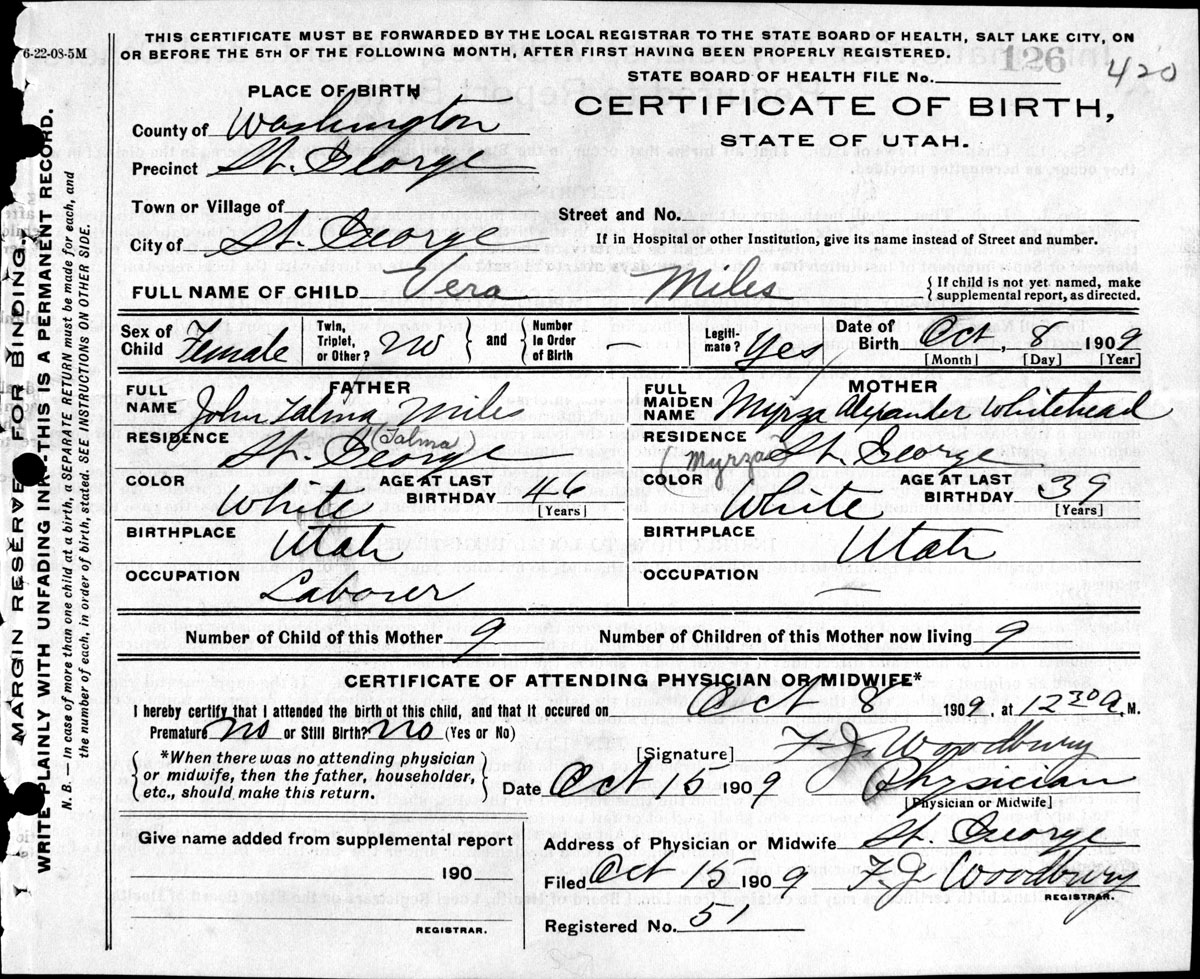 6-22-08-5M
THIS CERTIFICATE MUST BE FORWARDED BY THE LOCAL REGISTRAR TO THE STATE BOARD OF HEALTH, SALT LAKE CITY, ON
OR BEFORE THE 5TH OF THE FOLLOWING MONTH, AFTER FIRST HAVING BEEN PROPERLY REGISTERED.
126
420
STATE BOARD OF HEALTH FILE No.
CERTIFICATE OF BIRTH,
STATE OF UTAH.
PLACE OF BIRTH
County of Washington
Precinct St. George
Town or Village of
Street and No.
City of St. George
If in Hospital or other Institution, give its name instead of Street and number.
FULL NAME OF CHILD Vera Miles
{ If child is not yet named, make
supplemental report, as directed.
Sex of Child Female
Twin, Triplet, or Other? No } and { Number in Order of Birth —
Legiti- mate? Yes
Date of Birth Oct. 8 1909
[Month] [Day] [Year]
FATHER
FULL NAME John Talma Miles
(Talma)
RESIDENCE St. George
COLOR White
AGE AT LAST BIRTHDAY 46
[Years]
BIRTHPLACE Utah
OCCUPATION Laborer
MOTHER
FULL MAIDEN NAME Myrza Alexander Whitehead
RESIDENCE St. George
(Myrza)
COLOR White
AGE AT LAST BIRTHDAY 39
[Years]
BIRTHPLACE Utah
OCCUPATION —
Number of Child of this Mother 9
Number of Children of this Mother now living 9
CERTIFICATE OF ATTENDING PHYSICIAN OR MIDWIFE*
I hereby certify that I attended the birth of this child, and that it occured on Oct 8 1909, at 12 30 a. M.
Premature? No or Still Birth? No (Yes or No)
*When there was no attending physician
or midwife, then the father, householder,
etc., should make this return.
[Signature] F. J. Woodbury
Date Oct 15 1909 Physician
[Physician or Midwife]
Give name added from supplemental report
190
REGISTRAR.
Address of Physician or Midwife St. George
Filed Oct 15 1909 F. J. Woodbury
REGISTRAR.
Registered No. 51
MARGIN RESERVED FOR BINDING.
WRITE PLAINLY WITH UNFADING INK—THIS IS A PERMANENT RECORD.
N. B. — In case of more than one child at a birth, a SEPARATE RETURN must be made for each, and
the number of each, in order of birth, stated. SEE INSTRUCTIONS ON OTHER SIDE.